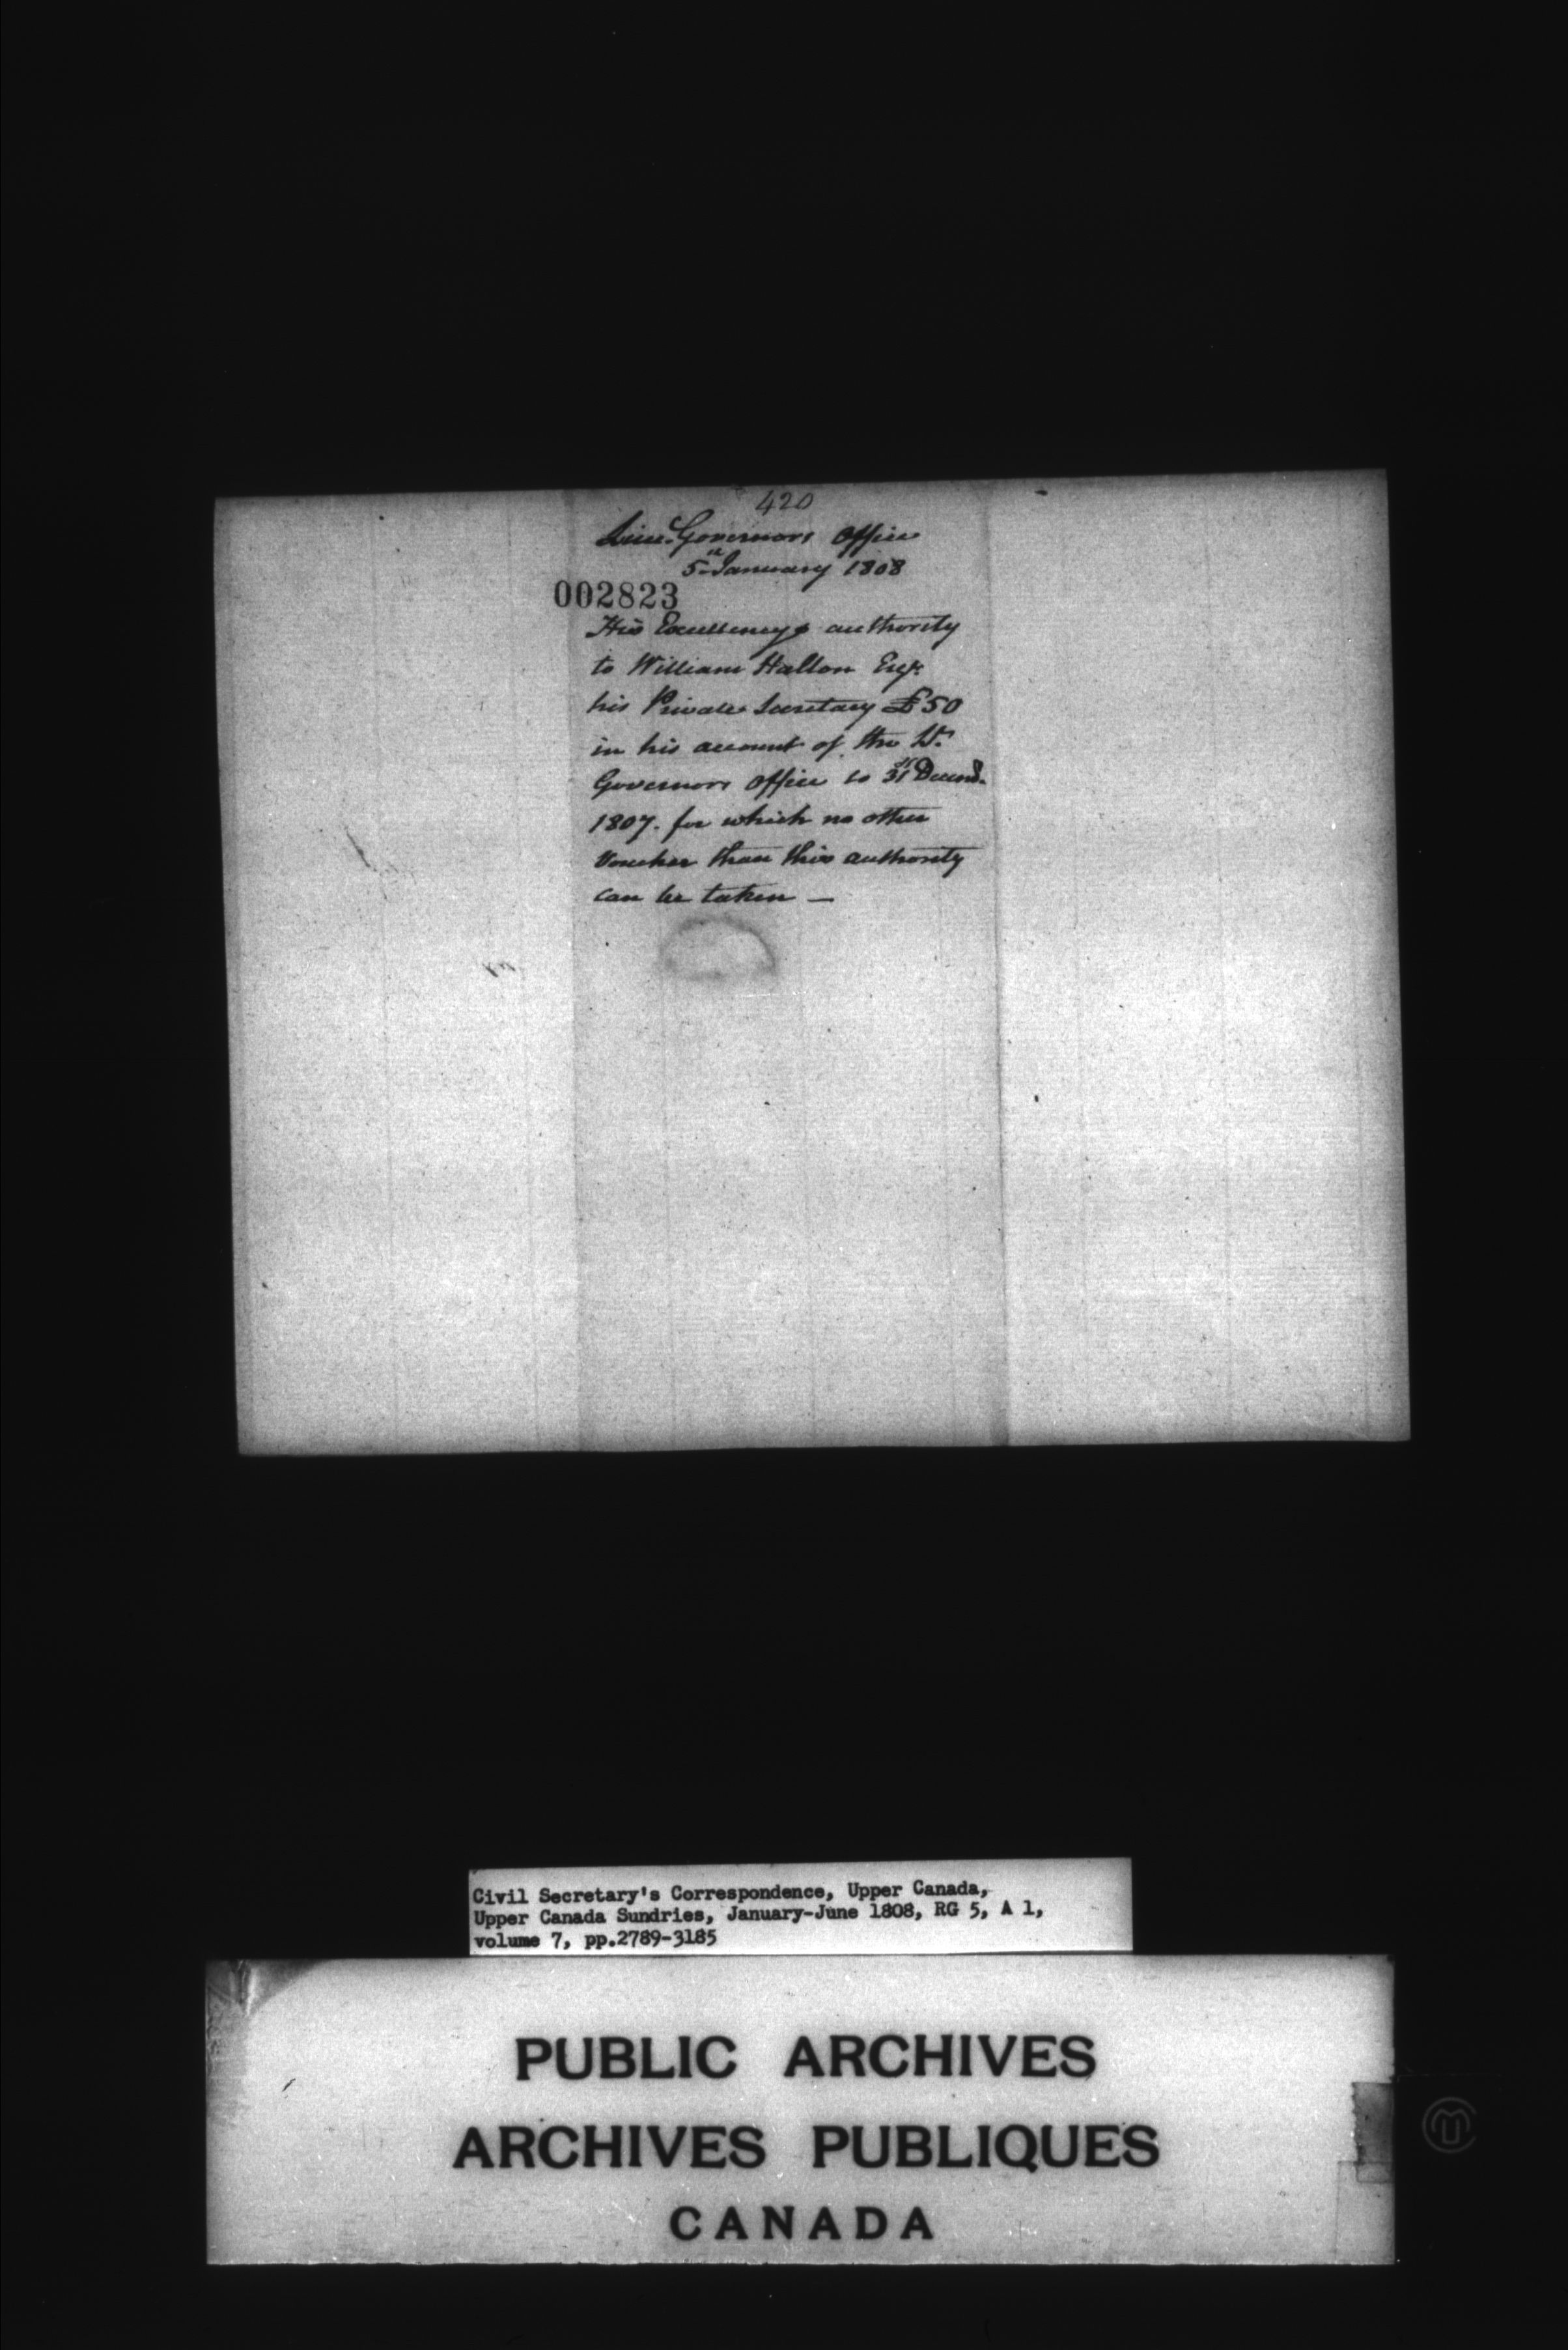 420
Lieu. Governors Office
5th January 1808
002823
His Excellencys authority
to William Halton Esqr.
his Private Secretary £50
in his account of the Lt.
Governors Office to 31st Decemr.
1807. for which no other
Voucher than this authority
can be taken —
Civil Secretary's Correspondence, Upper Canada,
Upper Canada Sundries, January-June 1808, RG 5, A 1,
volume 7, pp.2789-3185
PUBLIC ARCHIVES
ARCHIVES PUBLIQUES
CANADA